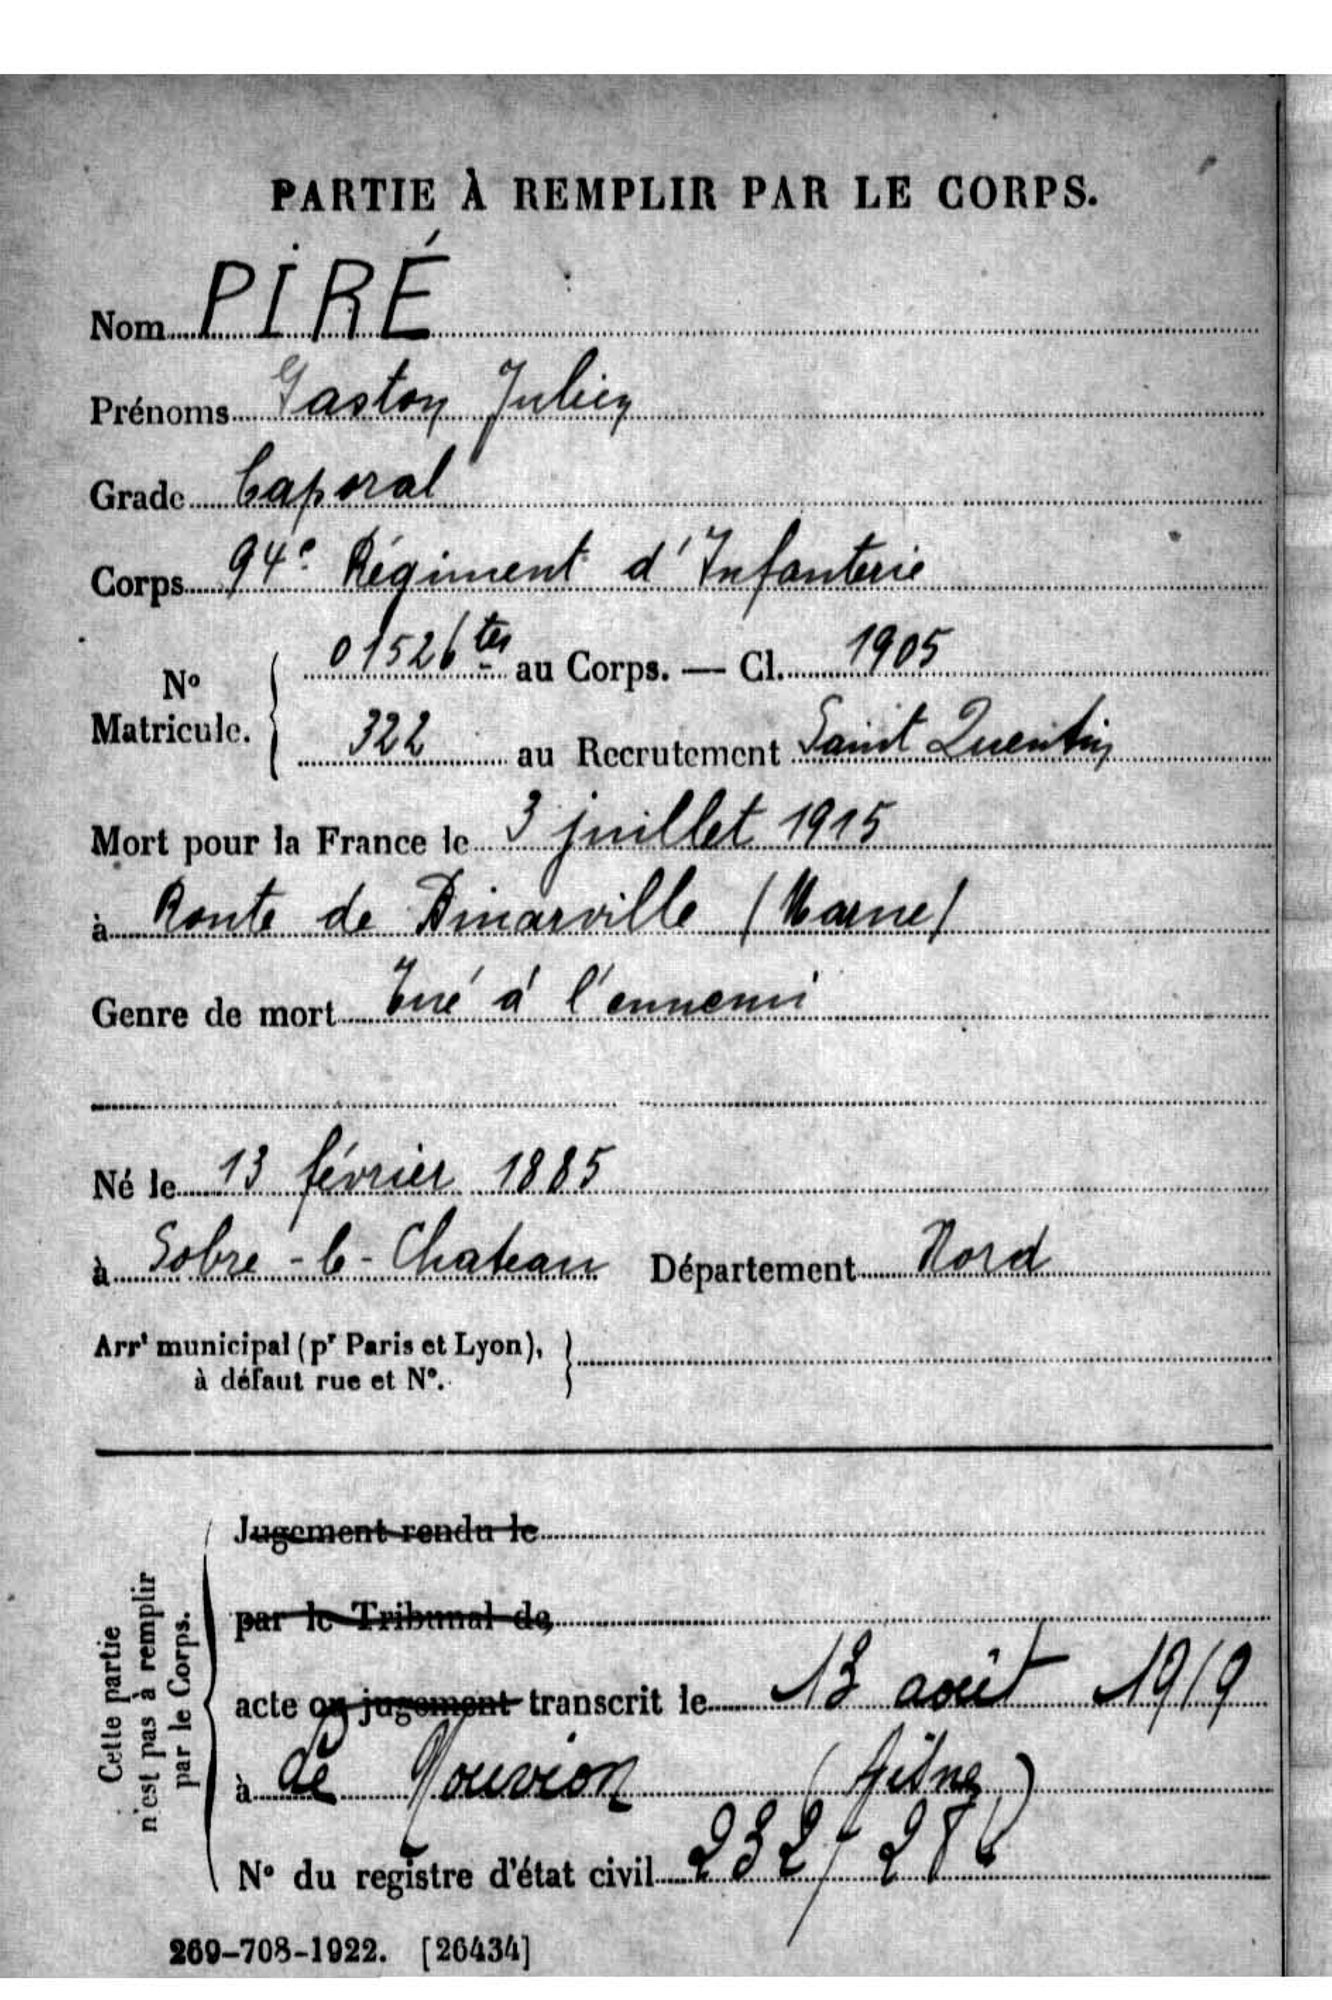 PARTIE À REMPLIR PAR LE CORPS.
Nom PIRÉ
Prénoms Gaston Julien
Grade Caporal
Corps 94e Régiment d'Infanterie
No Matricule. 01526 ter au Corps. — Cl. 1905
322 au Recrutement Saint Quentin
Mort pour la France le 3 juillet 1915
à Route de Binarville (Marne)
Genre de mort Tué à l'ennemi
Né le 13 février 1885
à Solre-le-Chateau Département Nord
Arrt municipal (pr Paris et Lyon),
à défaut rue et No.
Cette partie
n'est pas à remplir
par le Corps.
Jugement rendu le
par le Tribunal de
acte ou jugement transcrit le 13 août 1919
à Nouvion (Aisne)
No du registre d'état civil 232/
269-708-1922. [26434]